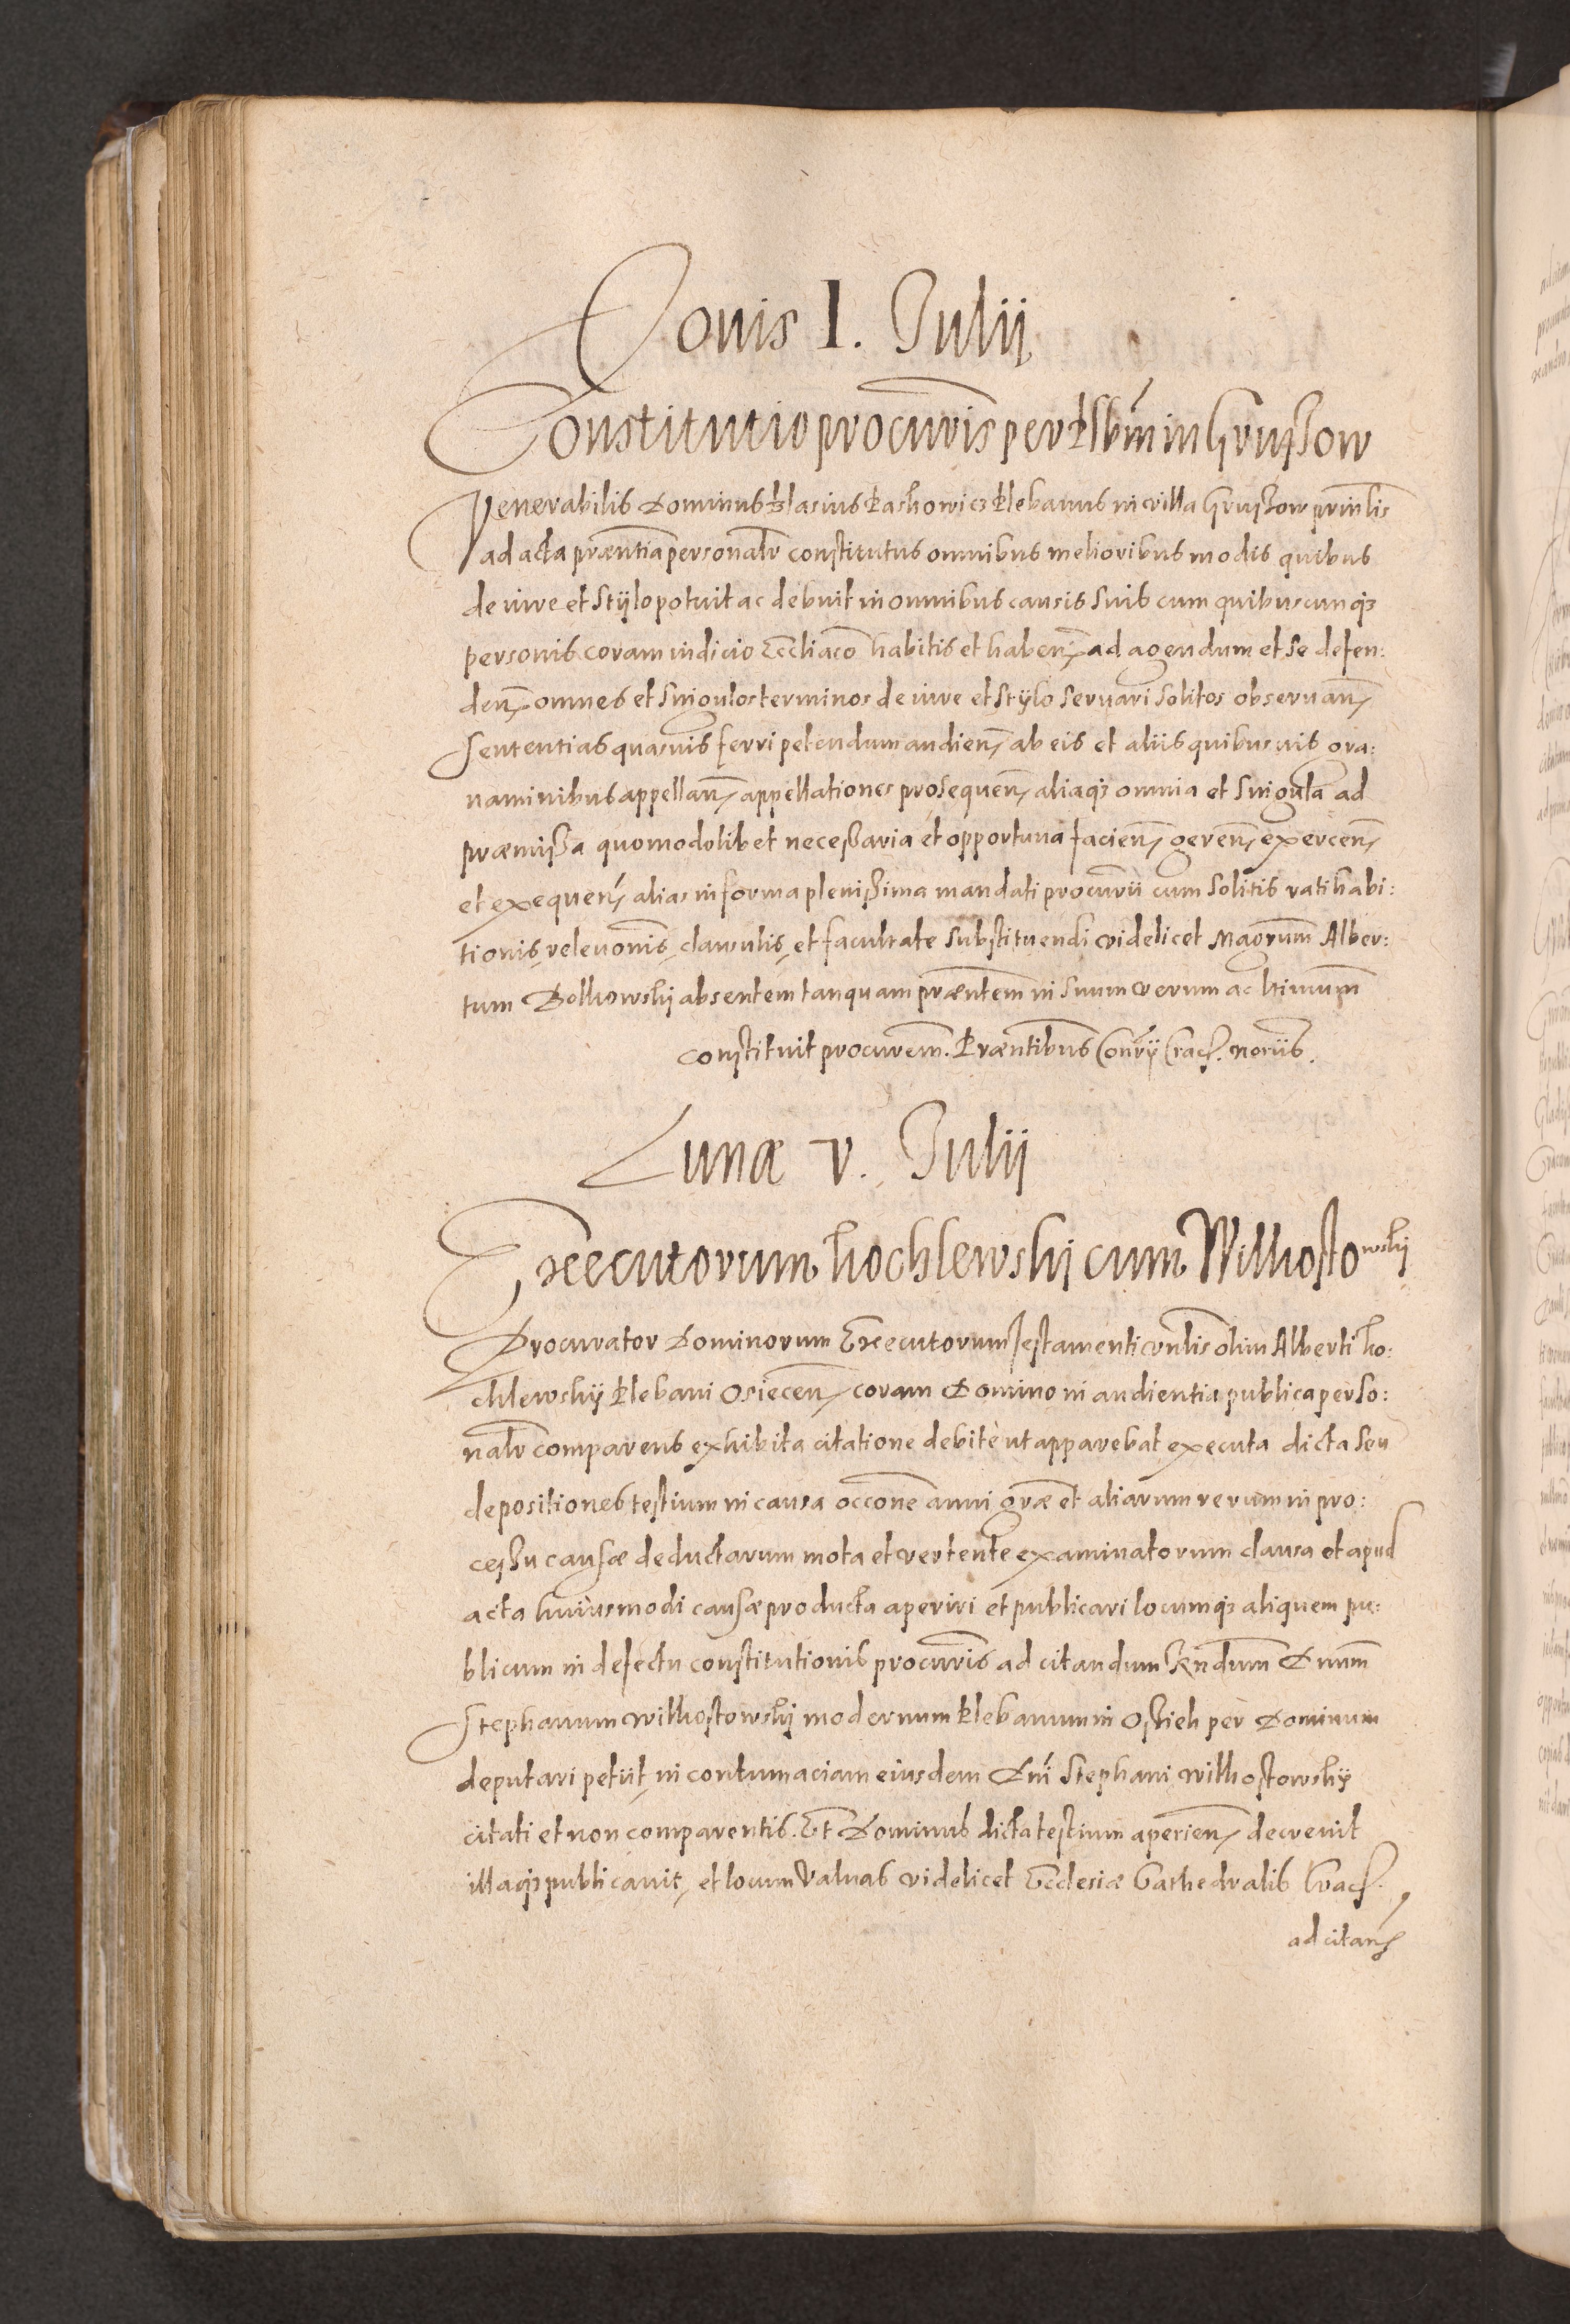 Jouis 1. Julii
Constitutio procuris per Plbm in Gruszow
Venerabilis Dominus Blasius Paskowicz Plebanus in villa Gruszow prinlis
ad acta præntia personalr constitutus omnibus melioribus modis quibus
de iure et stylo potuit ac debuit in omnibus causis suis cum quibuscunqз
personis coram iudicio Eccliaco habitis et haben, ad agendum et se defen:
den, omnes et singulos terminos de iure et stylo seruari solitos obseruan,
sententias quasuis ferri petendum audien, ab eis et aliis quibusuis gra:
uaminibus appellan, appellationes prosequen, aliaqз omnia et singula ad
præmissa quomodolibet necessaria et opportuna facien, geren, exercen,
et exequen, alias in forma plenissima mandati procurii cum solitis ratihabi:
tionis, releuonis, clausulis, et facultate substituendi videlicet Magrum Alber:
tum Bolkowski absentem tanquam præntem in suum verum ac ltimum
constituit procurem. Præntibus Conrij Crac. noriis.
Lunæ v. Julii
Executorum Kochlewski cum Wilkostowskj
Procurator Dominorum Executorum Testamenti vnlis olim Alberti Ko:
chlewskij Plebani Osiecen, coram Domino in audientia publica perso:
nalr comparens exhibita citatione debite ut apparebat executa dicta seu
depositiones testium in causa occone anni græ et aliarum rerum in pro:
cessu causæ deductarum mota et vertente examinatorum clausa et apud
acta huiusmodi causæ producta aperiri et publicari locumqз aliquem pu:
blicum in defectu constitutionis procuris ad citandum Rndum Dnum
Stephanum Wilkostowskj modernum Plebanum in Osziek per Dominum
deputari petiit, in contumaciam eiusdem Dni Stephani Wilkostowskij
citati et non comparentis. Et Dominus dicta testium aperien, decreuit
illaqз publicauit, et locum Valuas videlicet Ecclesiæ Cathedralis Crac.
ad citan,